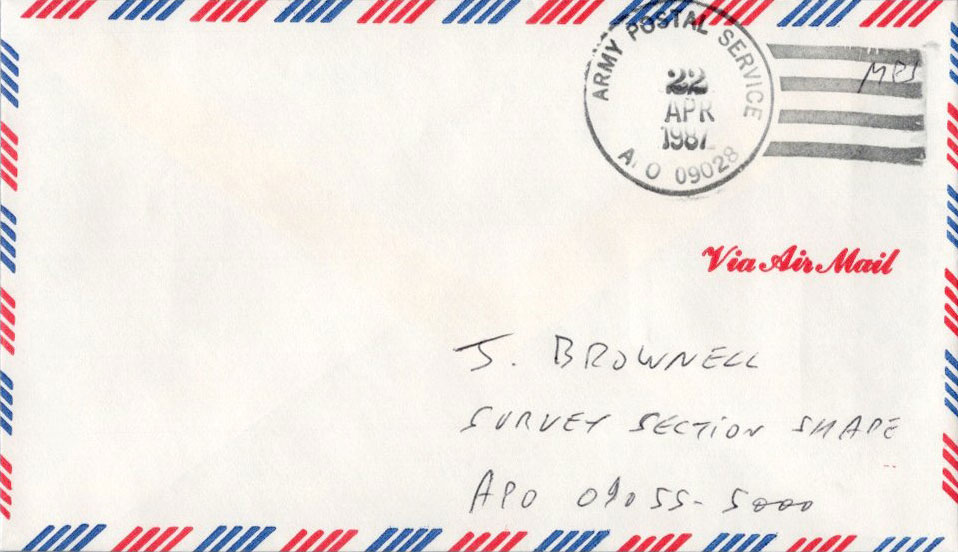 ARMY POSTAL SERVICE
22
APR
1987
A O 09028
MPS
Via Air Mail
J. BROWNELL
SURVEY SECTION SHAPE
APO 09055-5000